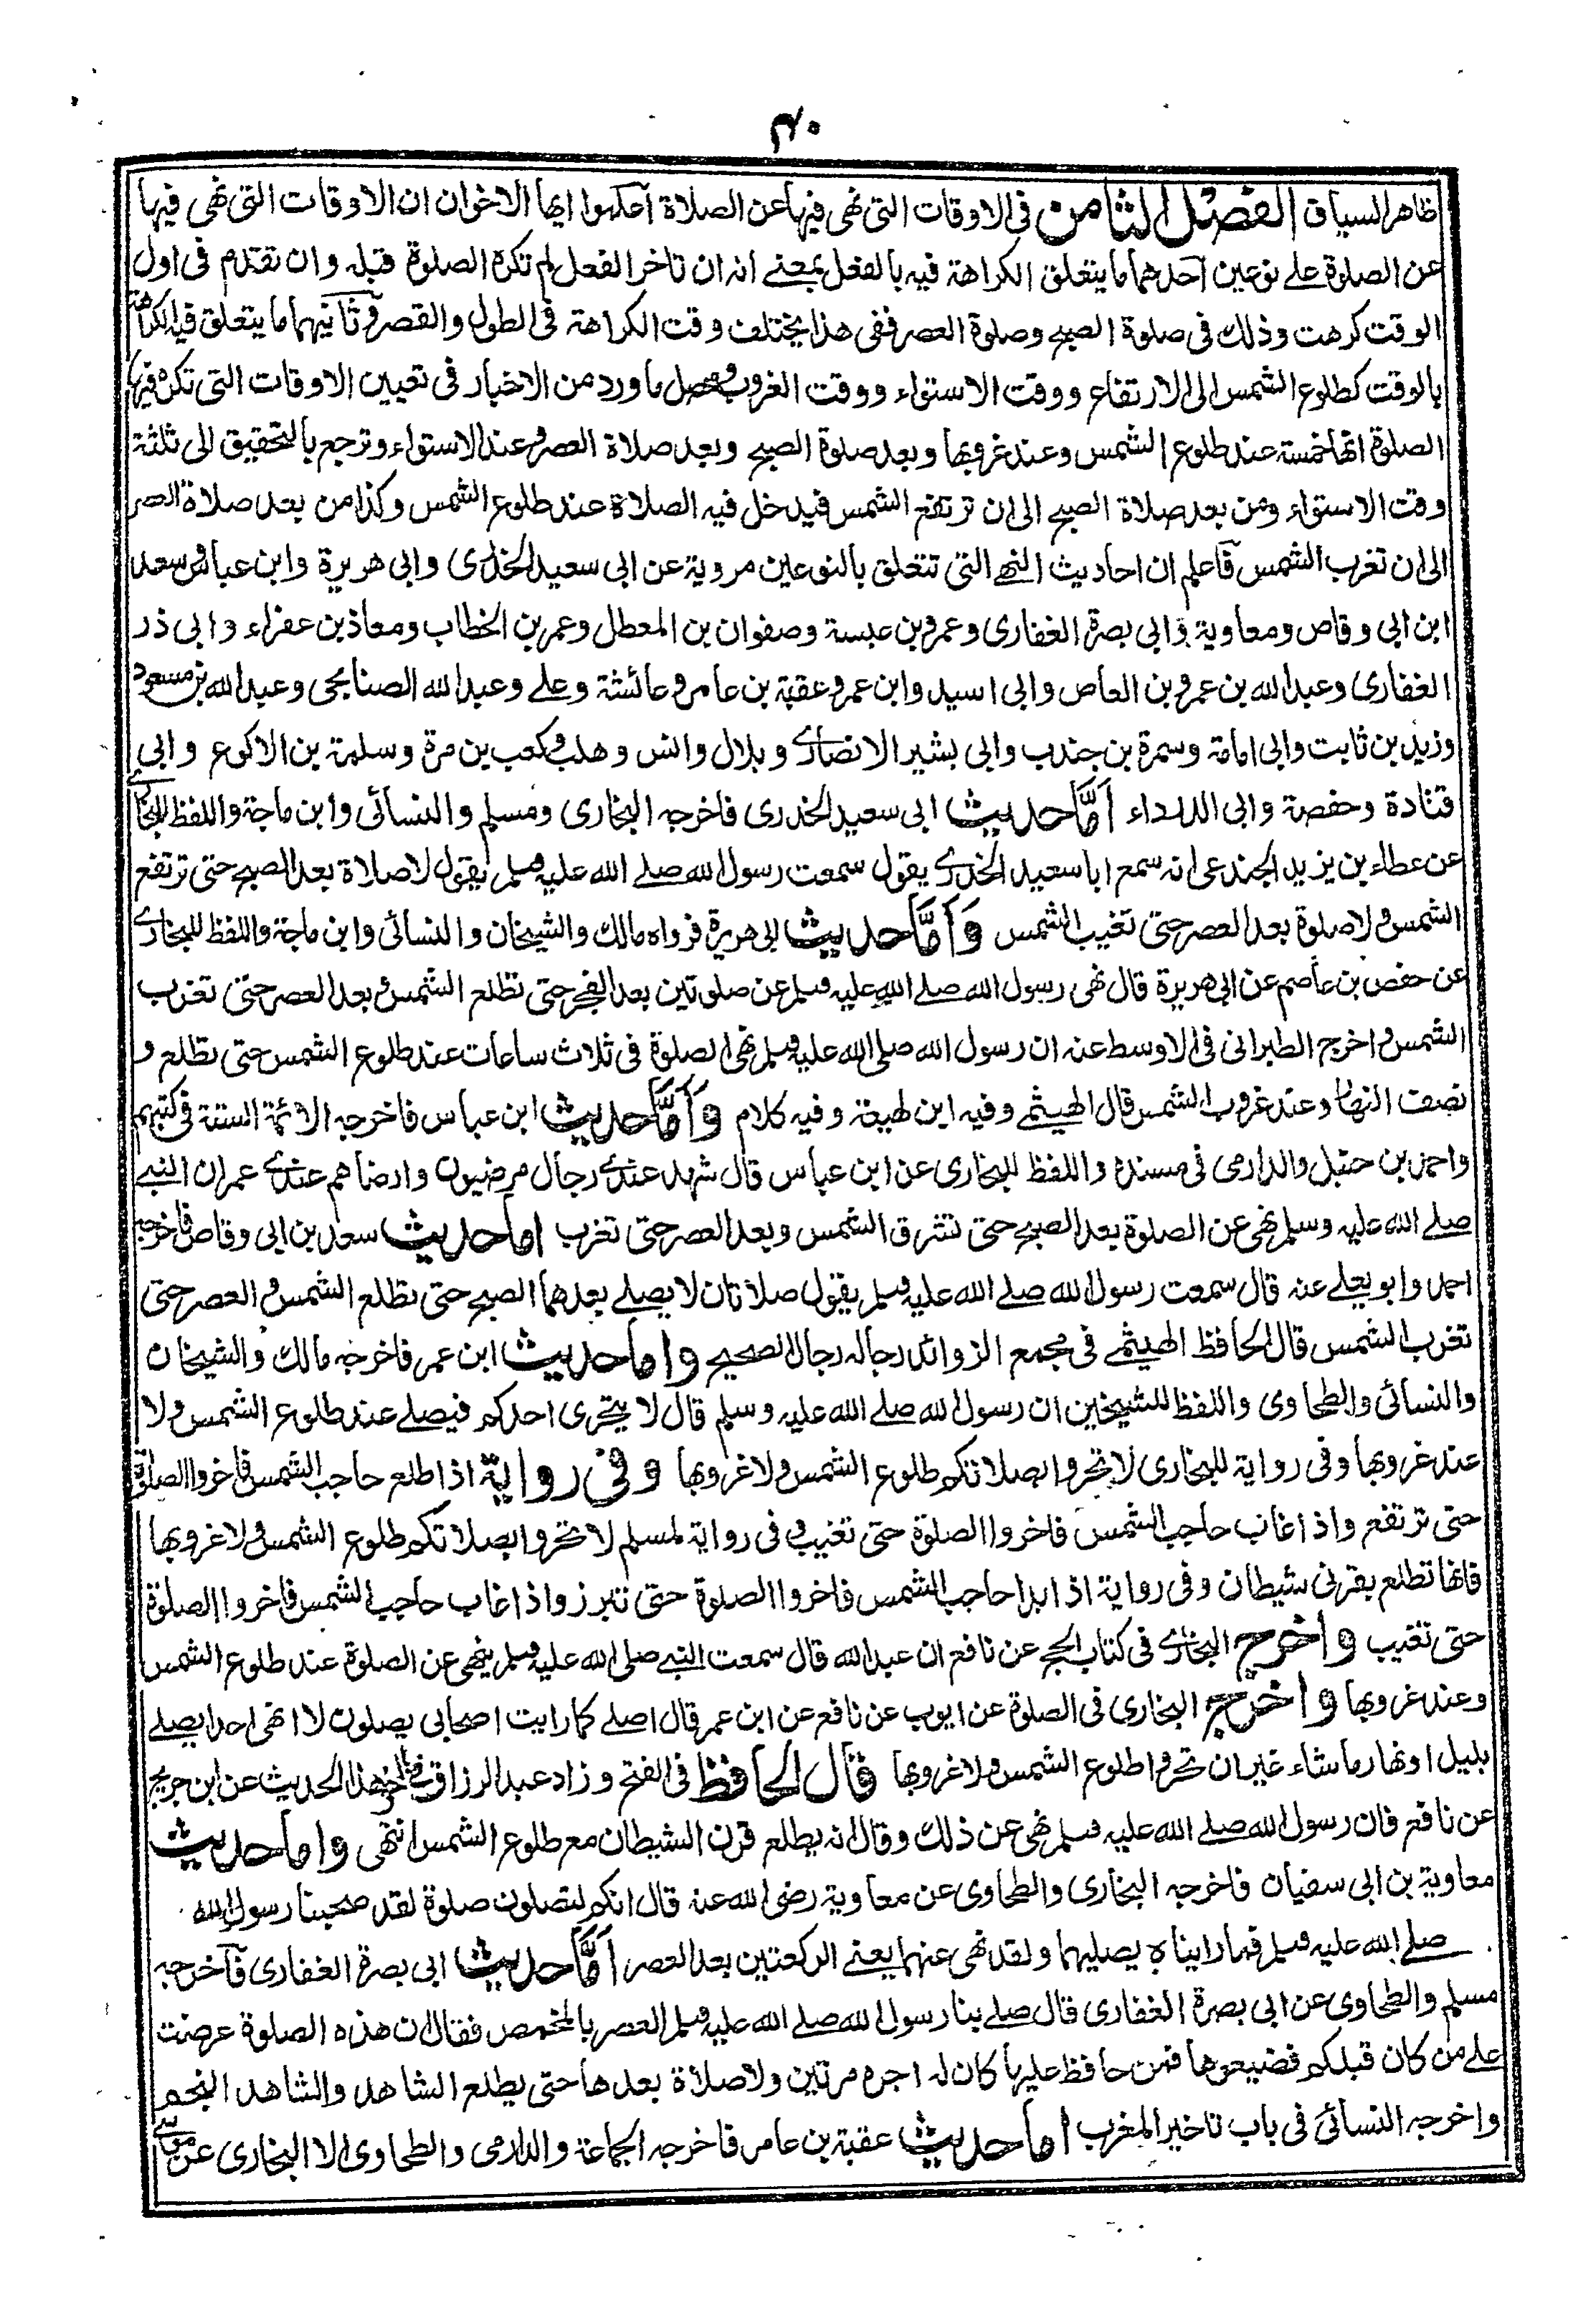 ۴۰
ظاهر السياق الفصل الثامن فى الاوقات التى نهى فيها عن الصلاة آعلموا ايها الاخوان ان الاوقات التى نهى فيها
عن الصلوة على نوعين آحدهما ما يتعلق الكراهة فيه بالفعل بمعنے انه ان تاخر الفعل لم تكره الصلوة قبله وان تقدم فى اول
الوقت كرهت وذلك فى صلوة الصبح وصلوة العصر ففى هذا يختلف وقت الكراهة فى الطول والقصر وثانيهما ما يتعلق فيه الكراهة
بالوقت كطلوع الشمس الى الارتفاع ووقت الاستواء ووقت الغروب ومحصل ما ورد من الاخبار فى تعيين الاوقات التى تكره فيها
الصلوة انها خمسة عند طلوع الشمس وعند غروبها وبعد صلوة الصبح وبعد صلاة العصر وعند الاستواء وترجع بالتحقيق الى ثلثة
وقت الاستواء ومن بعد صلاة الصبح الى ان ترتفع الشمس فيدخل فيه الصلاة عند طلوع الشمس وكذا من بعد صلاة العصر
الى ان تغرب الشمس فآعلم ان احاديث النهے التى تتعلق بالنوعين مروية عن ابى سعيد الخدرى وابى هريرة وابن عباس وسعد
ابن ابى وقاص ومعاوية وابى بصرة الغفارى وعمرو بن عبسة وصفوان بن المعطل وعمر بن الخطاب ومعاذ بن عفراء وابى ذر
الغفارى وعبد الله بن عمرو بن العاص وابى اسيد وابن عمر وعقبة بن عامر وعائشة وعلے وعبد الله الصنابحى وعبد الله بن مسعود
وزيد بن ثابت وابى امامة وسمرة بن جندب وابى بشير الانصارے وبلال وانس وهلب وكعب بن مرة وسلمة بن الاكوع وابى
قتادة وحفصة وابى الدرداء اَمَّا حديث ابى سعيد الخدرى فاخرجه البخارى ومسلم والنسائى وابن ماجة واللفظ للبخارے
عن عطاء بن يزيد الجندعى انه سمع ابا سعيد الخدرے يقول سمعت رسول الله صلے الله عليه وسلم يقول لا صلاة بعد الصبح حتى ترتفع
الشمس ولا صلوة بعد العصر حتى تغيب الشمس وَاَمَّا حديث ابى هريرة فرواه مالك والشيخان والنسائى وابن ماجة واللفظ للبخارے
عن حفص بن عاصم عن ابى هريرة قال نهى رسول الله صلے الله عليه وسلم عن صلوتين بعد الفجر حتى تطلع الشمس وبعد العصر حتى تغرب
الشمس واخرج الطبرانى فى الاوسط عنه ان رسول الله صلى الله عليه وسلم نهى الصلوة فى ثلاث ساعات عند طلوع الشمس حتى تطلع و
نصف النهار وعند غروب الشمس قال الهيثمے وفيه ابن لهيعة وفيه كلام وَاَمَّا حديث ابن عباس فاخرجه الائمة الستة فى كتبهم
واحمد بن حنبل والدارمى فى مسنده واللفظ للبخارى عن ابن عباس قال شهد عندے رجال مرضيون وارضاهم عندے عمر ان النبے
صلے الله عليه وسلم نهى عن الصلوة بعد الصبح حتى تشرق الشمس وبعد العصر حتى تغرب اما حديث سعد بن ابى وقاص فاخرجه
احمد وابو يعلے عنه قال سمعت رسول الله صلے الله عليه وسلم يقول صلاتان لا يصلے بعدهما الصبح حتى تطلع الشمس والعصر حتى
تغرب الشمس قال الحافظ الهيثمے فى مجمع الزوائد رجاله رجال الصحيح واما حديث ابن عمر فاخرجه مالك والشيخان
والنسائى والطحاوى واللفظ للشيخين ان رسول الله صلے الله عليه وسلم قال لا يتحرى احدكم فيصلے عند طلوع الشمس ولا
عند غروبها وفى رواية للبخارى لا تحروا بصلاتكم طلوع الشمس ولا غروبها وفى رواية اذا طلع حاجب الشمس فاخروا الصلوة
حتى ترتفع واذا غاب حاجب الشمس فاخروا الصلوة حتى تغيب وفى رواية لمسلم لا تحروا بصلاتكم طلوع الشمس ولا غروبها
فانها تطلع بقرنى شيطان وفى رواية اذا بدا حاجب الشمس فاخروا الصلوة حتى تبرز واذا غاب حاجب الشمس فاخروا الصلوة
حتى تغيب واخرج البخارى فى كتاب الحج عن نافع ان عبد الله قال سمعت النبے صلى الله عليه وسلم ينهى عن الصلوة عند طلوع الشمس
وعند غروبها واخرج البخارى فى الصلوة عن ايوب عن نافع عن ابن عمر قال اصلے كما رايت اصحابى يصلون لا انهى احدا يصلے
بليل او نهار ما شاء غير ان تحروا طلوع الشمس ولا غروبها قال الحافظ فى الفتح وزاد عبد الرزاق فى آخر هذا الحديث عن ابن جريج
عن نافع فان رسول الله صلے الله عليه وسلم نهى عن ذلك وقال انه يطلع قرن الشيطان مع طلوع الشمس انتهى واما حديث
معاوية بن ابى سفيان فاخرجه البخارى والطحاوى عن معاوية رضى الله عنه قال انكم لتصلون صلوة لقد صحبنا رسول الله
صلے الله عليه وسلم فما رايناه يصليهما ولقد نهى عنهما يعنے الركعتين بعد العصر اَمَّا حديث ابى بصرة الغفارى فآخرجه
مسلم والطحاوى عن ابى بصرة الغفارى قال صلے بنا رسول الله صلے الله عليه وسلم العصر بالمخمص فقال ان هذه الصلوة عرضت
علے من كان قبلكم فضيعوها فمن حافظ عليها كان له اجره مرتين ولا صلاة بعدها حتى يطلع الشاهد والشاهد النجم
واخرجه النسائى فى باب تاخير المغرب اما حديث عقبة بن عامر فاخرجه الجماعة والدارمى والطحاوى الا البخارى عن موسے